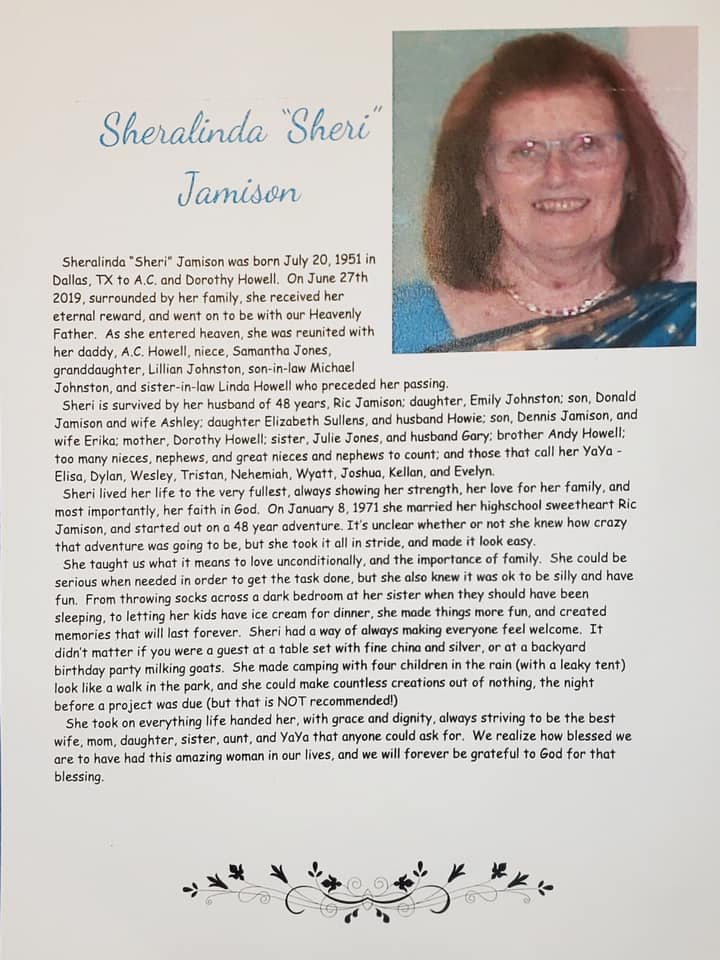 Sheralinda "Sheri"
Jamison
Sheralinda "Sheri" Jamison was born July 20, 1951 in
Dallas, TX to A.C. and Dorothy Howell. On June 27th
2019, surrounded by her family, she received her
eternal reward, and went on to be with our Heavenly
Father. As she entered heaven, she was reunited with
her daddy, A.C. Howell, niece, Samantha Jones,
granddaughter, Lillian Johnston, son-in-law Michael
Johnston, and sister-in-law Linda Howell who preceded her passing.
Sheri is survived by her husband of 48 years, Ric Jamison; daughter, Emily Johnston; son, Donald
Jamison and wife Ashley; daughter Elizabeth Sullens, and husband Howie; son, Dennis Jamison, and
wife Erika; mother, Dorothy Howell; sister, Julie Jones, and husband Gary; brother Andy Howell;
too many nieces, nephews, and great nieces and nephews to count; and those that call her YaYa -
Elisa, Dylan, Wesley, Tristan, Nehemiah, Wyatt, Joshua, Kellan, and Evelyn.
Sheri lived her life to the very fullest, always showing her strength, her love for her family, and
most importantly, her faith in God. On January 8, 1971 she married her highschool sweetheart Ric
Jamison, and started out on a 48 year adventure. It's unclear whether or not she knew how crazy
that adventure was going to be, but she took it all in stride, and made it look easy.
She taught us what it means to love unconditionally, and the importance of family. She could be
serious when needed in order to get the task done, but she also knew it was ok to be silly and have
fun. From throwing socks across a dark bedroom at her sister when they should have been
sleeping, to letting her kids have ice cream for dinner, she made things more fun, and created
memories that will last forever. Sheri had a way of always making everyone feel welcome. It
didn't matter if you were a guest at a table set with fine china and silver, or at a backyard
birthday party milking goats. She made camping with four children in the rain (with a leaky tent)
look like a walk in the park, and she could make countless creations out of nothing, the night
before a project was due (but that is NOT recommended!)
She took on everything life handed her, with grace and dignity, always striving to be the best
wife, mom, daughter, sister, aunt, and YaYa that anyone could ask for. We realize how blessed we
are to have had this amazing woman in our lives, and we will forever be grateful to God for that
blessing.